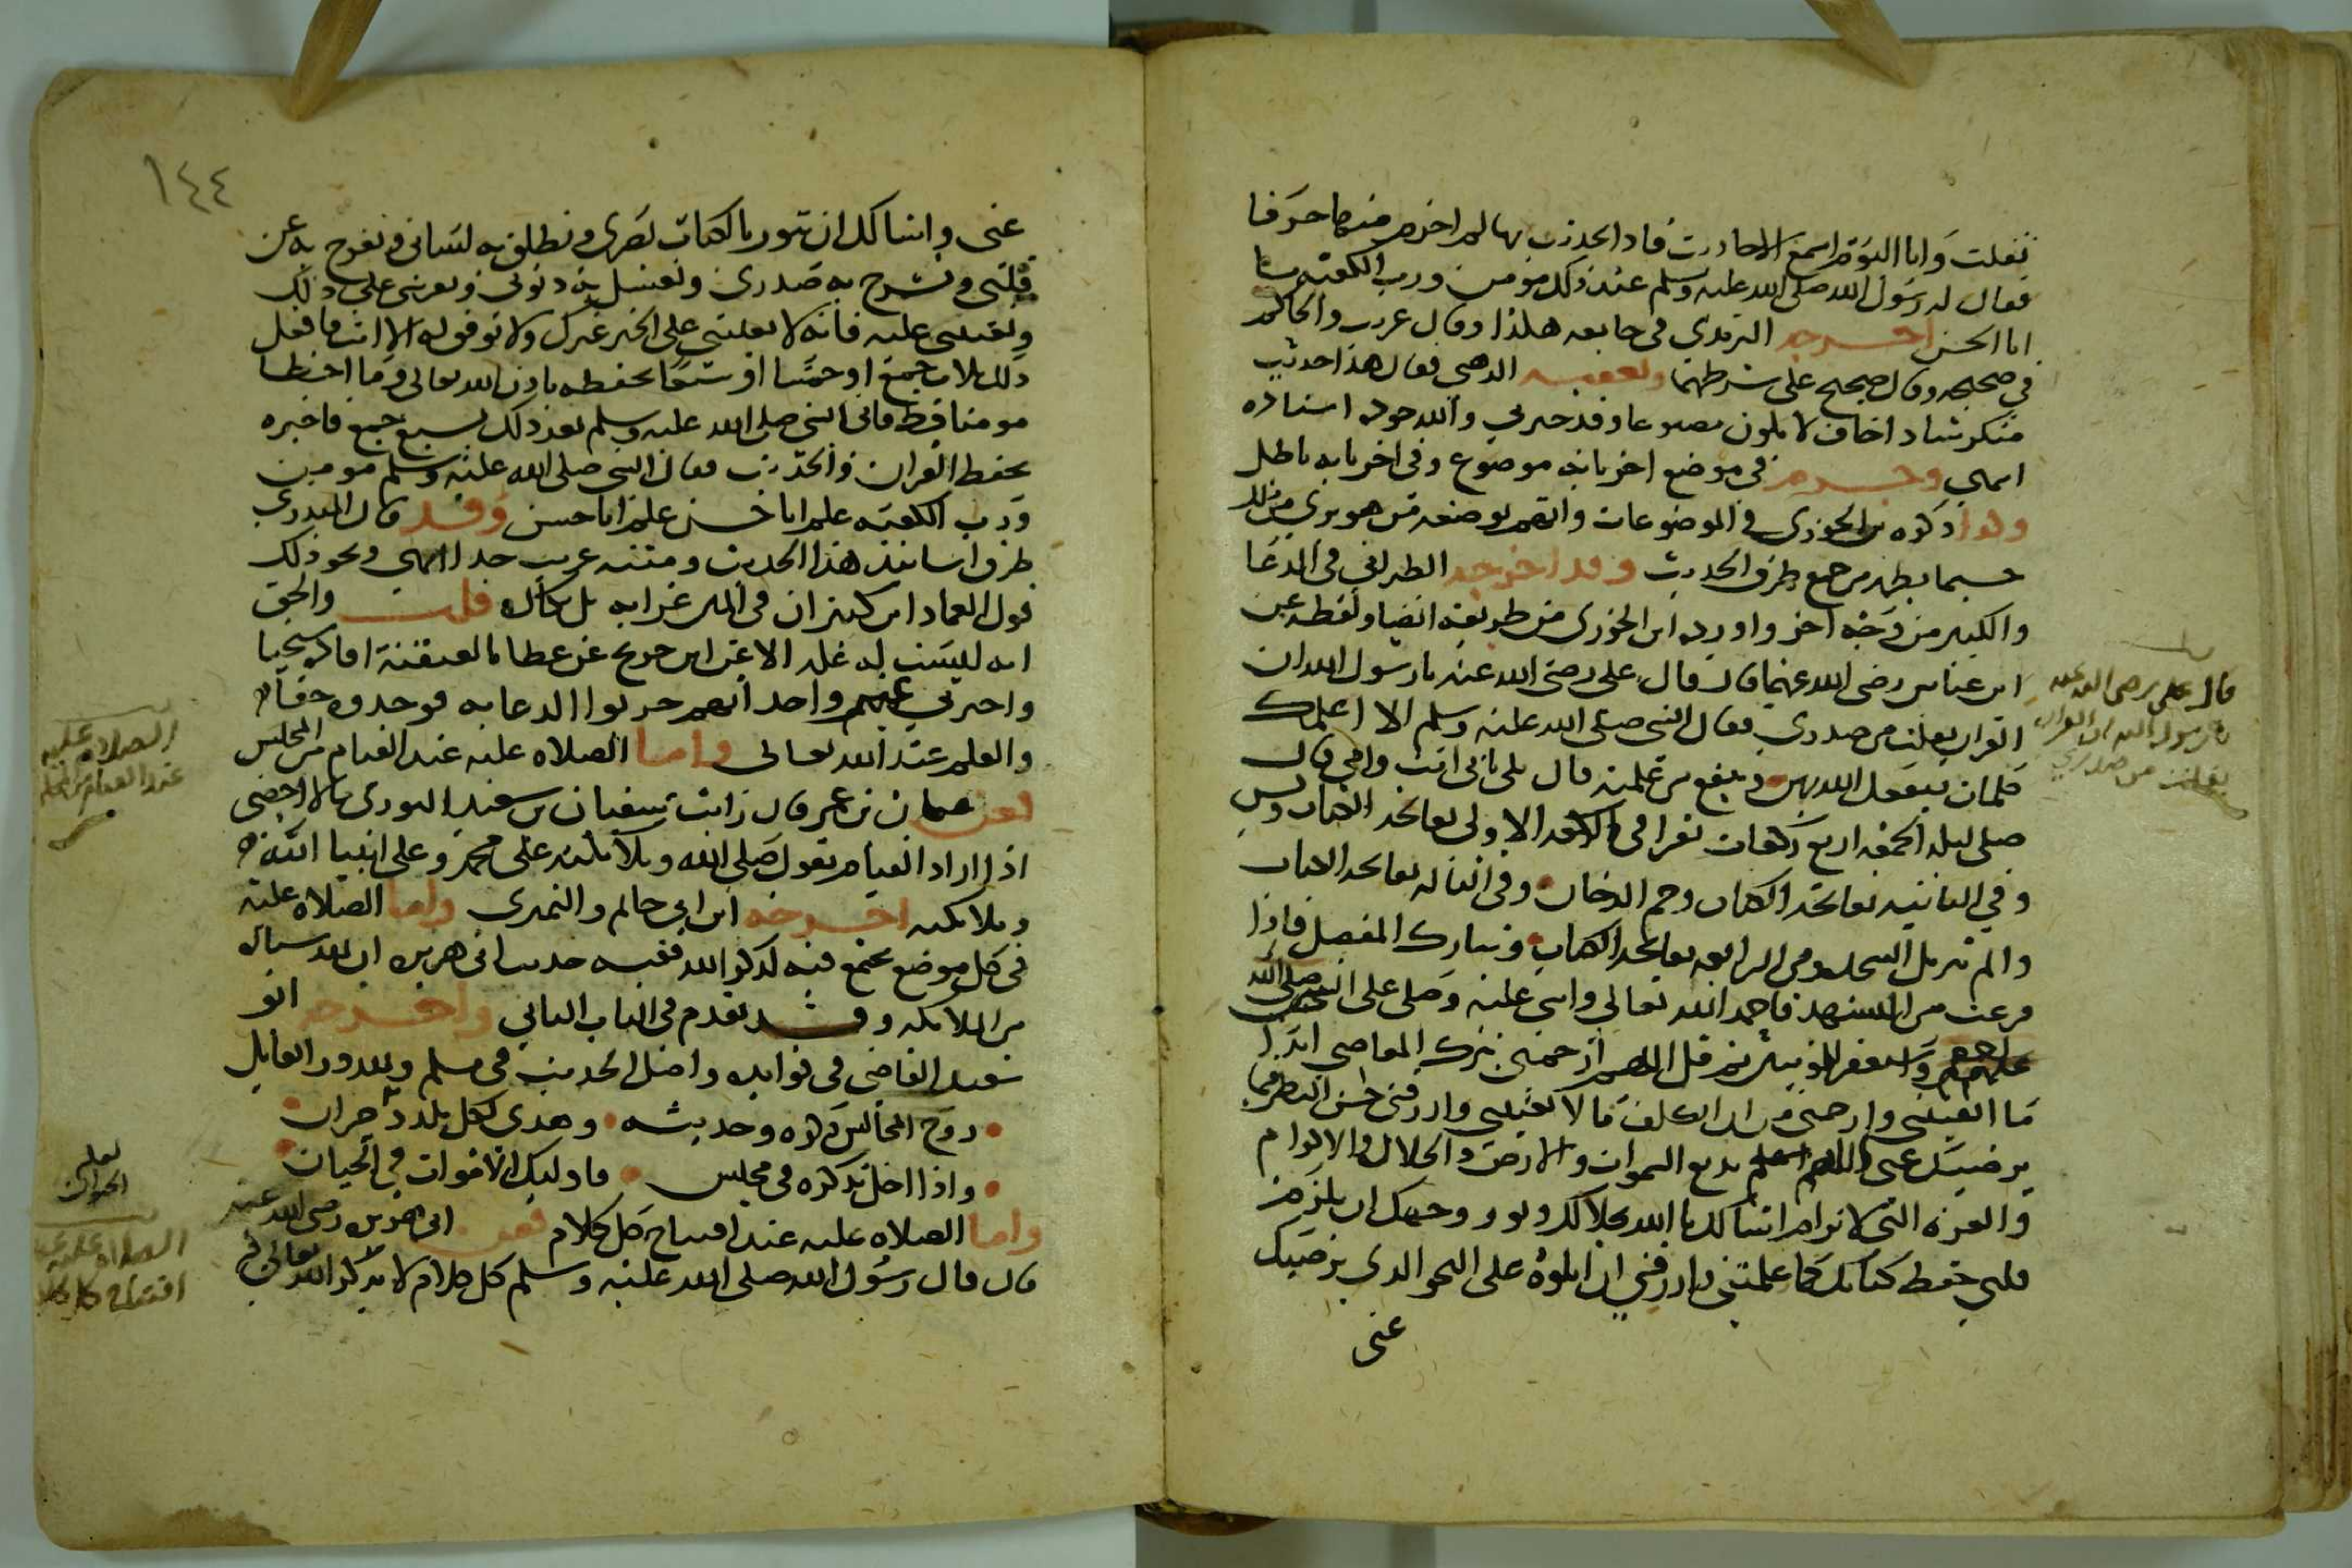 تفلت وانا اليوم اسمع الاحاديث فاذا تحدثت بها لم اخرم منها حرفا
فقال له رسول الله صلى الله عليه وسلم عند ذلك مومن ورب الكعبة يا
ابا الحسن اخرجه الترمذي في جامعه هكذا وقال غريب والحاكم
في صحيحه وقال صحيح على شرطهما وتعقبه الذهبي فقال هذا حديث
منكر شاذ اخاف لا يكون مصنوعا وقد حيرني والله جودة اسناده
انتهى وجزم في موضع اخر بانه موضوع وفي اخر بانه باطل
وكذا ذكره بن الجوزي في الموضوعات واتهم بوضعه من هو بري من ذلك
حسبما يظهر من جمع طرق الحديث وقد اخرجه الطبراني في الدعا
والكبير من وجه اخر واورده ابن الجوزي من طريقه ايضا ولفظه عن
ابن عباس رضي الله عنهما قال قال علي رضي الله عنه يا رسول الله ان
القران يفلت من صدري فقال النبي صلى الله عليه وسلم الا اعلمك
كلمات ينفعك الله بهن وينفع من علمته قال بلى بابي انت وامي قال
صلى ليلة الجمعة اربع ركعات تقرا في الركعة الاولى بفاتحة الكتاب ويس
وفي الثانية بفاتحة الكتاب وحم الدخان وفي الثالثة بفاتحة الكتاب
والم تنزيل السجدة وفي الرابعة بفاتحة الكتاب وتبارك المفصل فاذا
فرغت من التشهد فاحمد الله تعالى واثني عليه وصلى على النبيين صلى الله
عليهم واستغفر للمومنين ثم قل اللهم ارحمني بترك المعاصي ابدا
ما ابقيتني وارحمني من ان اتكلف ما لا يعنيني وارزقني حسن النظر فيما
يرضيك عني اللهم بديع السموات والارض ذا الجلال والاكرام
والعزة التي لا ترام اسالك يا الله بجلالك ونور وجهك ان تلزم
قلبي حفظ كتابك كما علمتني وارزقني ان اتلوه على النحو الذي يرضيك
عني
قال علي رضي الله عنه
يا رسول الله ان القران
يفلت من صدري
١٤٤
عني واسالك ان تنور بالكتاب بصري وتطلق به لساني وتفرج به عن
قلبي وتشرح به صدري وتغسل به ذنوبي وتقويني على ذلك
وتعينني عليه فانه لا يعينني على الخير غيرك ولا يوفق له الا انت فافعل
ذلك ثلاث جمع او خمسا او سبعا تحفظه باذن الله تعالى وما اخطا
مومنا قط فاتى النبي صلى الله عليه وسلم بعد ذلك بسبع جمع فاخبره
بحفظ القران والحديث فقال النبي صلى الله عليه وسلم مومن
ورب الكعبة علم ابا حسن علم ابا حسن وقد قال المنذري
طرق اسانيد هذا الحديث ومتنه غريب جدا انتهى ونحو ذلك
قول العماد ابن كثير ان في المتن غرابة بل نكارة قلت والحق
انه ليست له علة الا عن ابن جريج عن عطا بالعنعنة افاده شيخنا
واخبرني غير واحد انهم جربوا الدعا به فوجدوه حقا
والعلم عند الله تعالى واما الصلاة عليه عند القيام من المجلس
فعن عثمان بن عمر قال رايت سفيان بن سعيد الثوري مالا احصى
اذا اراد القيام يقول صلى الله وملائكته على محمد وعلى انبيا الله
وملائكته اخرجه ابن ابي حاتم والنميري واما الصلاة عليه
في كل موضع يجتمع فيه لذكر الله ففيه حديث ابي هريرة ان لله سيارة
من الملائكة وقد تقدم في الباب الثاني واخرجه ابو
سعيد القاضي في فوايده واصل الحديث في مسلم ولله در القايل
روح المجالس ذكره وحديثه وهدى لكل ملدد حيران
واذا اخل بذكره في مجلس فاولئك الاموات في الحيان
واما الصلاة عليه عند افتتاح كل كلام فعن ابي هريرة رضي الله عنه
قال قال رسول الله صلى الله عليه وسلم كل كلام لا يذكر الله تعالى فيه
الصلاة عليه
عند القيام من المجلس
الصلاة عليه عند
افتتاح كل كلام